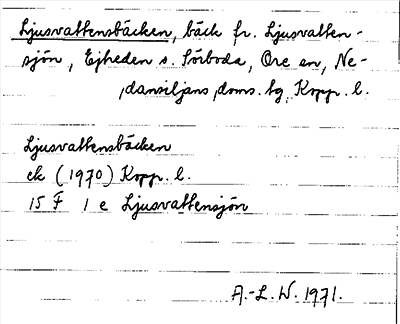 Ljusvattensbäcken, bäck fr. Ljusvatten-
sjön, Ejheden s. Förboda, Ore sn, Ne-
dansiljans doms. tg, Kopp. l.
Ljusvattensbäcken
ek (1970) Kopp. l.
15 F 1 e Ljusvattensjön
A.-L. W. 1971.